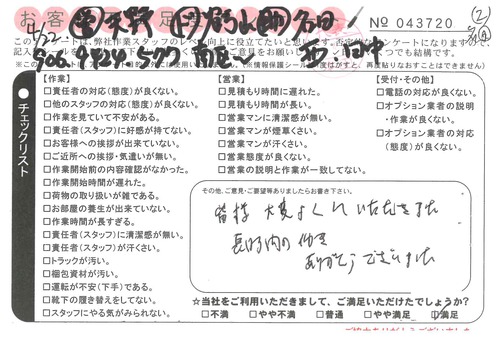 No 043720
このアンケートは、弊社作業スタッフのレベル向上に役立てたいと思います。
チェックリスト
【作業】
□責任者の対応(態度)が良くない。
□他のスタッフの対応(態度)が良くない。
□作業を見ていて不安がある。
□責任者(スタッフ)に好感が持てない。
□お客様への挨拶が出来ていない。
□ご近所への挨拶・気遣いが無い。
□作業開始前の内容確認がなかった。
□作業開始時間が遅れた。
□荷物の取り扱いが雑である。
□お部屋の養生が出来ていない。
□作業時間が長すぎる。
□責任者(スタッフ)に清潔感が無い。
□責任者(スタッフ)が汗くさい。
□トラックが汚い。
□梱包資材が汚い。
□運転が不安(下手)である。
□靴下の履き替えをしてない。
□スタッフにやる気がみられない。
【営業】
□見積もり時間に遅れた。
□見積もり時間が長い。
□営業マンに清潔感が無い。
□営業マンが煙草くさい。
□営業マンが汗くさい。
□営業態度が良くない。
□営業の説明と作業が一致してない。
【受付・その他】
□電話の対応が良くない。
□オプション業者の説明・作業が良くない。
□オプション業者の対応(態度)が良くない。
その他、ご意見・ご要望等ありましたらお書き下さい。
皆様 大変よくして いただきました
長時間の作業
ありがとうございました
☆当社をご利用いただきまして、ご満足いただけたでしょうか?
□不満 □やや不満 □普通 □やや満足 □満足